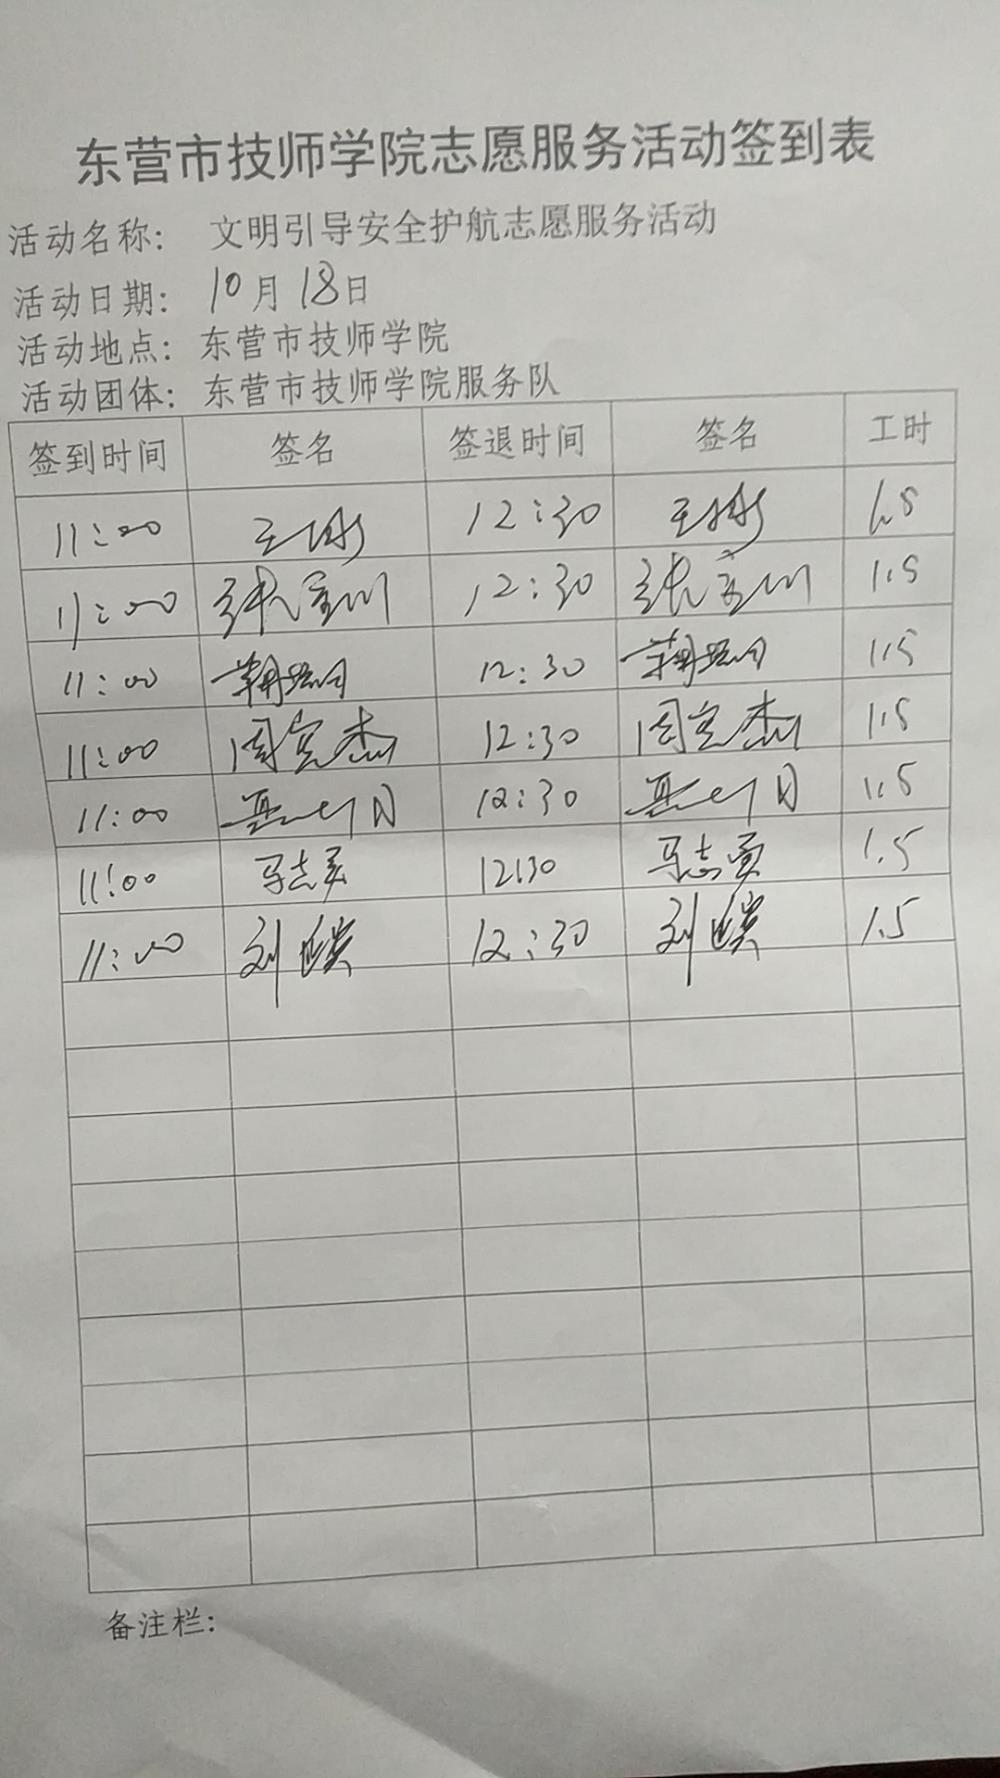 东营市技师学院志愿服务活动签到表
活动名称: 文明引导安全护航志愿服务活动
活动日期: 10月18日
活动地点: 东营市技师学院
活动团体: 东营市技师学院服务队
签到时间 签名 签退时间 签名 工时
11:00 12:30 1.5
11:00 张宝川 12:30 张宝川 1.5
11:00 12:30 1.5
11:00 周宝杰 12:30 周宝杰 1.5
11:00 12:30 1.5
11:00 马志勇 12:30 马志勇 1.5
11:00 刘 12:30 刘 1.5
备注栏: